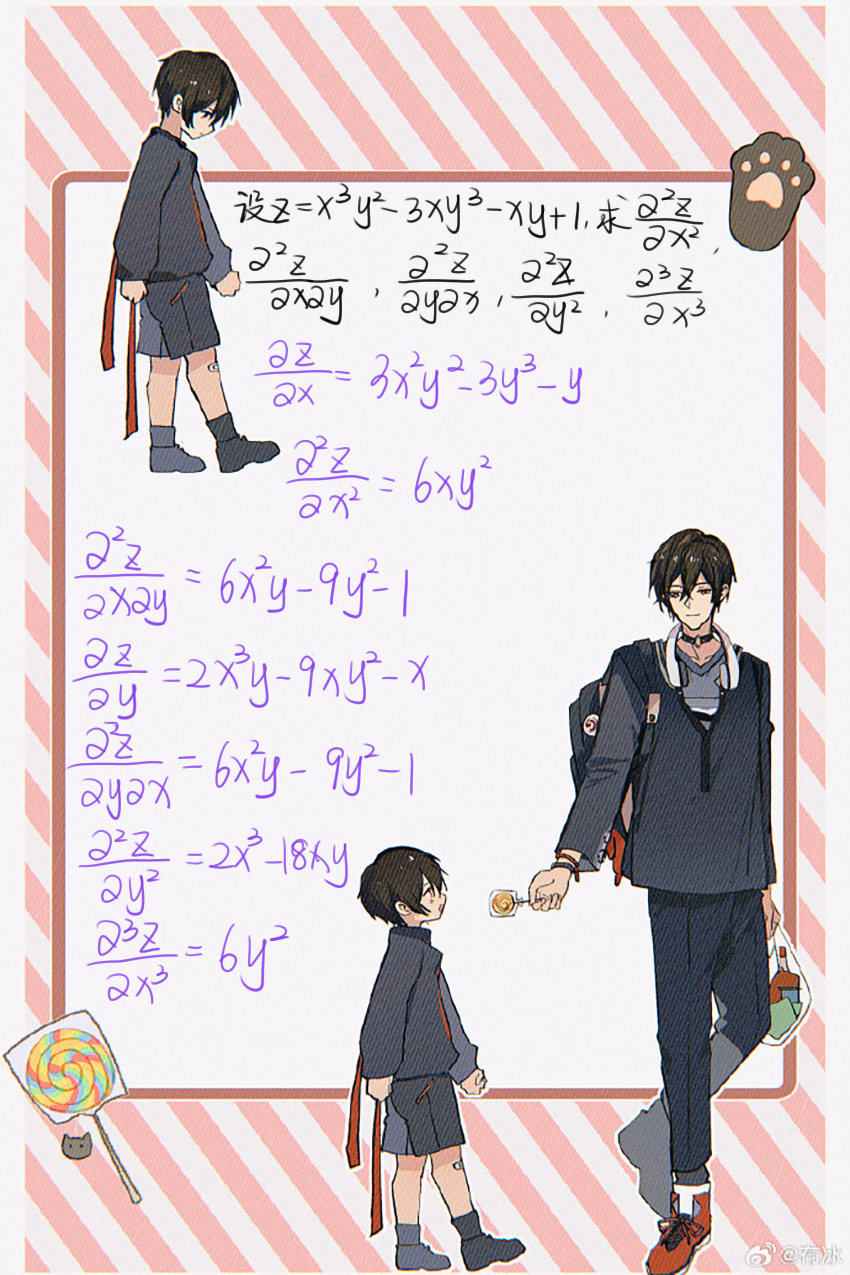 设z=x³y²-3xy³-xy+1,求∂²z/∂x²,
∂²z/∂x∂y,∂²z/∂y∂x,∂²z/∂y²,∂³z/∂x³
∂z/∂x=3x²y²-3y³-y
∂²z/∂x²=6xy²
∂²z/∂x∂y=6x²y-9y²-1
∂z/∂y=2x³y-9xy²-x
∂²z/∂y∂x=6x²y-9y²-1
∂²z/∂y²=2x³-18xy
∂³z/∂x³=6y²
@布冰